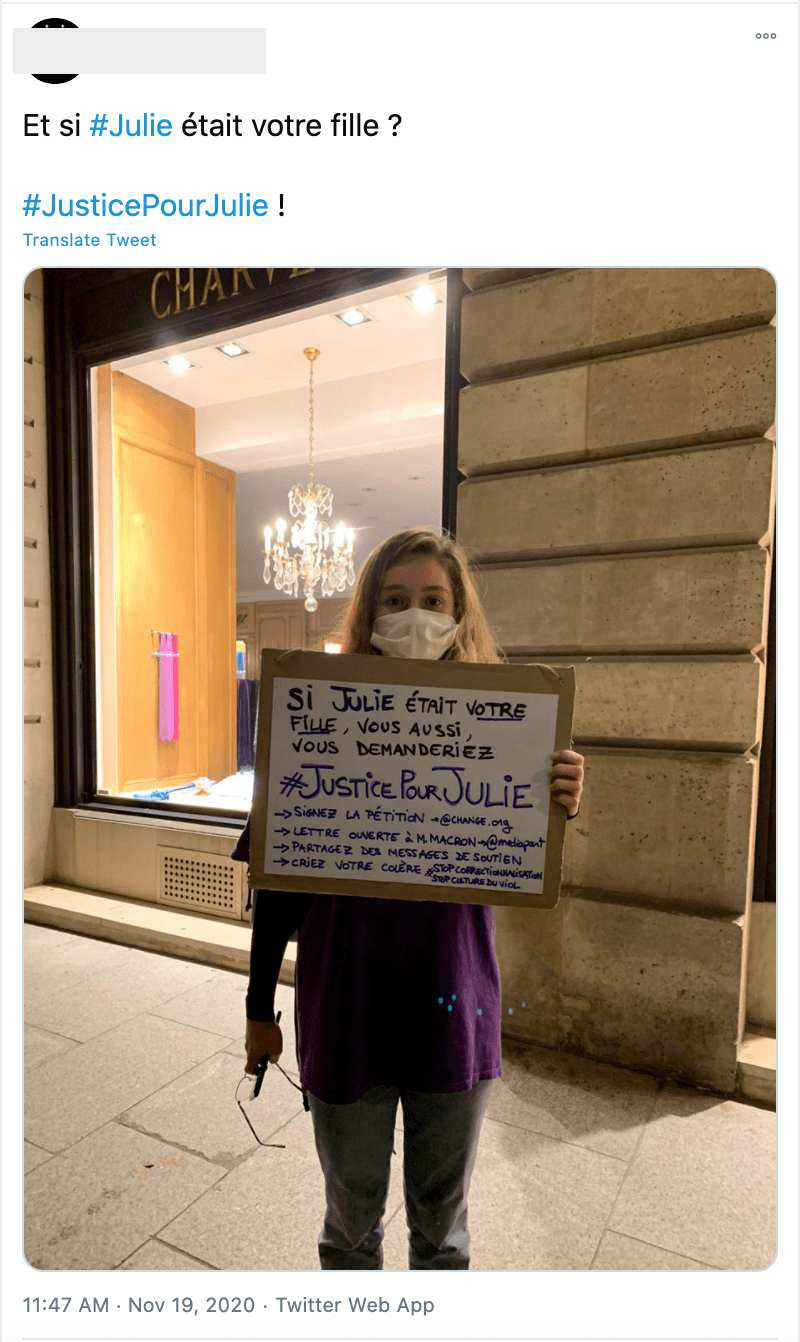 Et si #Julie était votre fille ?
#JusticePourJulie !
Translate Tweet
Si JULiE ÉTAiT VOTRE
FiLLE, VOUS AUSSi,
VOUS DEMANDERiEZ
#JUSTiCE POUR JULiE
→SiGNEZ LA PÉTiTiON →@CHANGE.org
→LETTRE OUVERTE à M. MACRON→@mediapart
→PARTAGEZ DES MESSAGES DE SOUTiEN
→CRiEZ VOTRE COLÈRE #STOPCORRECTiONNALiSATiON
STOP CULTURE DU ViOL
11:47 AM · Nov 19, 2020 · Twitter Web App